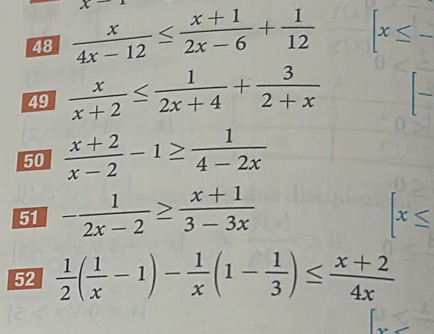 48 \frac{x}{4x - 12} ≤ \frac{x + 1}{2x - 6} + \frac{1}{12} [x ≤ -
49 \frac{x}{x + 2} ≤ \frac{1}{2x + 4} + \frac{3}{2 + x} [-
50 \frac{x + 2}{x - 2} - 1 ≥ \frac{1}{4 - 2x}
51 -\frac{1}{2x - 2} ≥ \frac{x + 1}{3 - 3x} [x ≤
52 \frac{1}{2}(\frac{1}{x} - 1) - \frac{1}{x}(1 - \frac{1}{3}) ≤ \frac{x + 2}{4x}